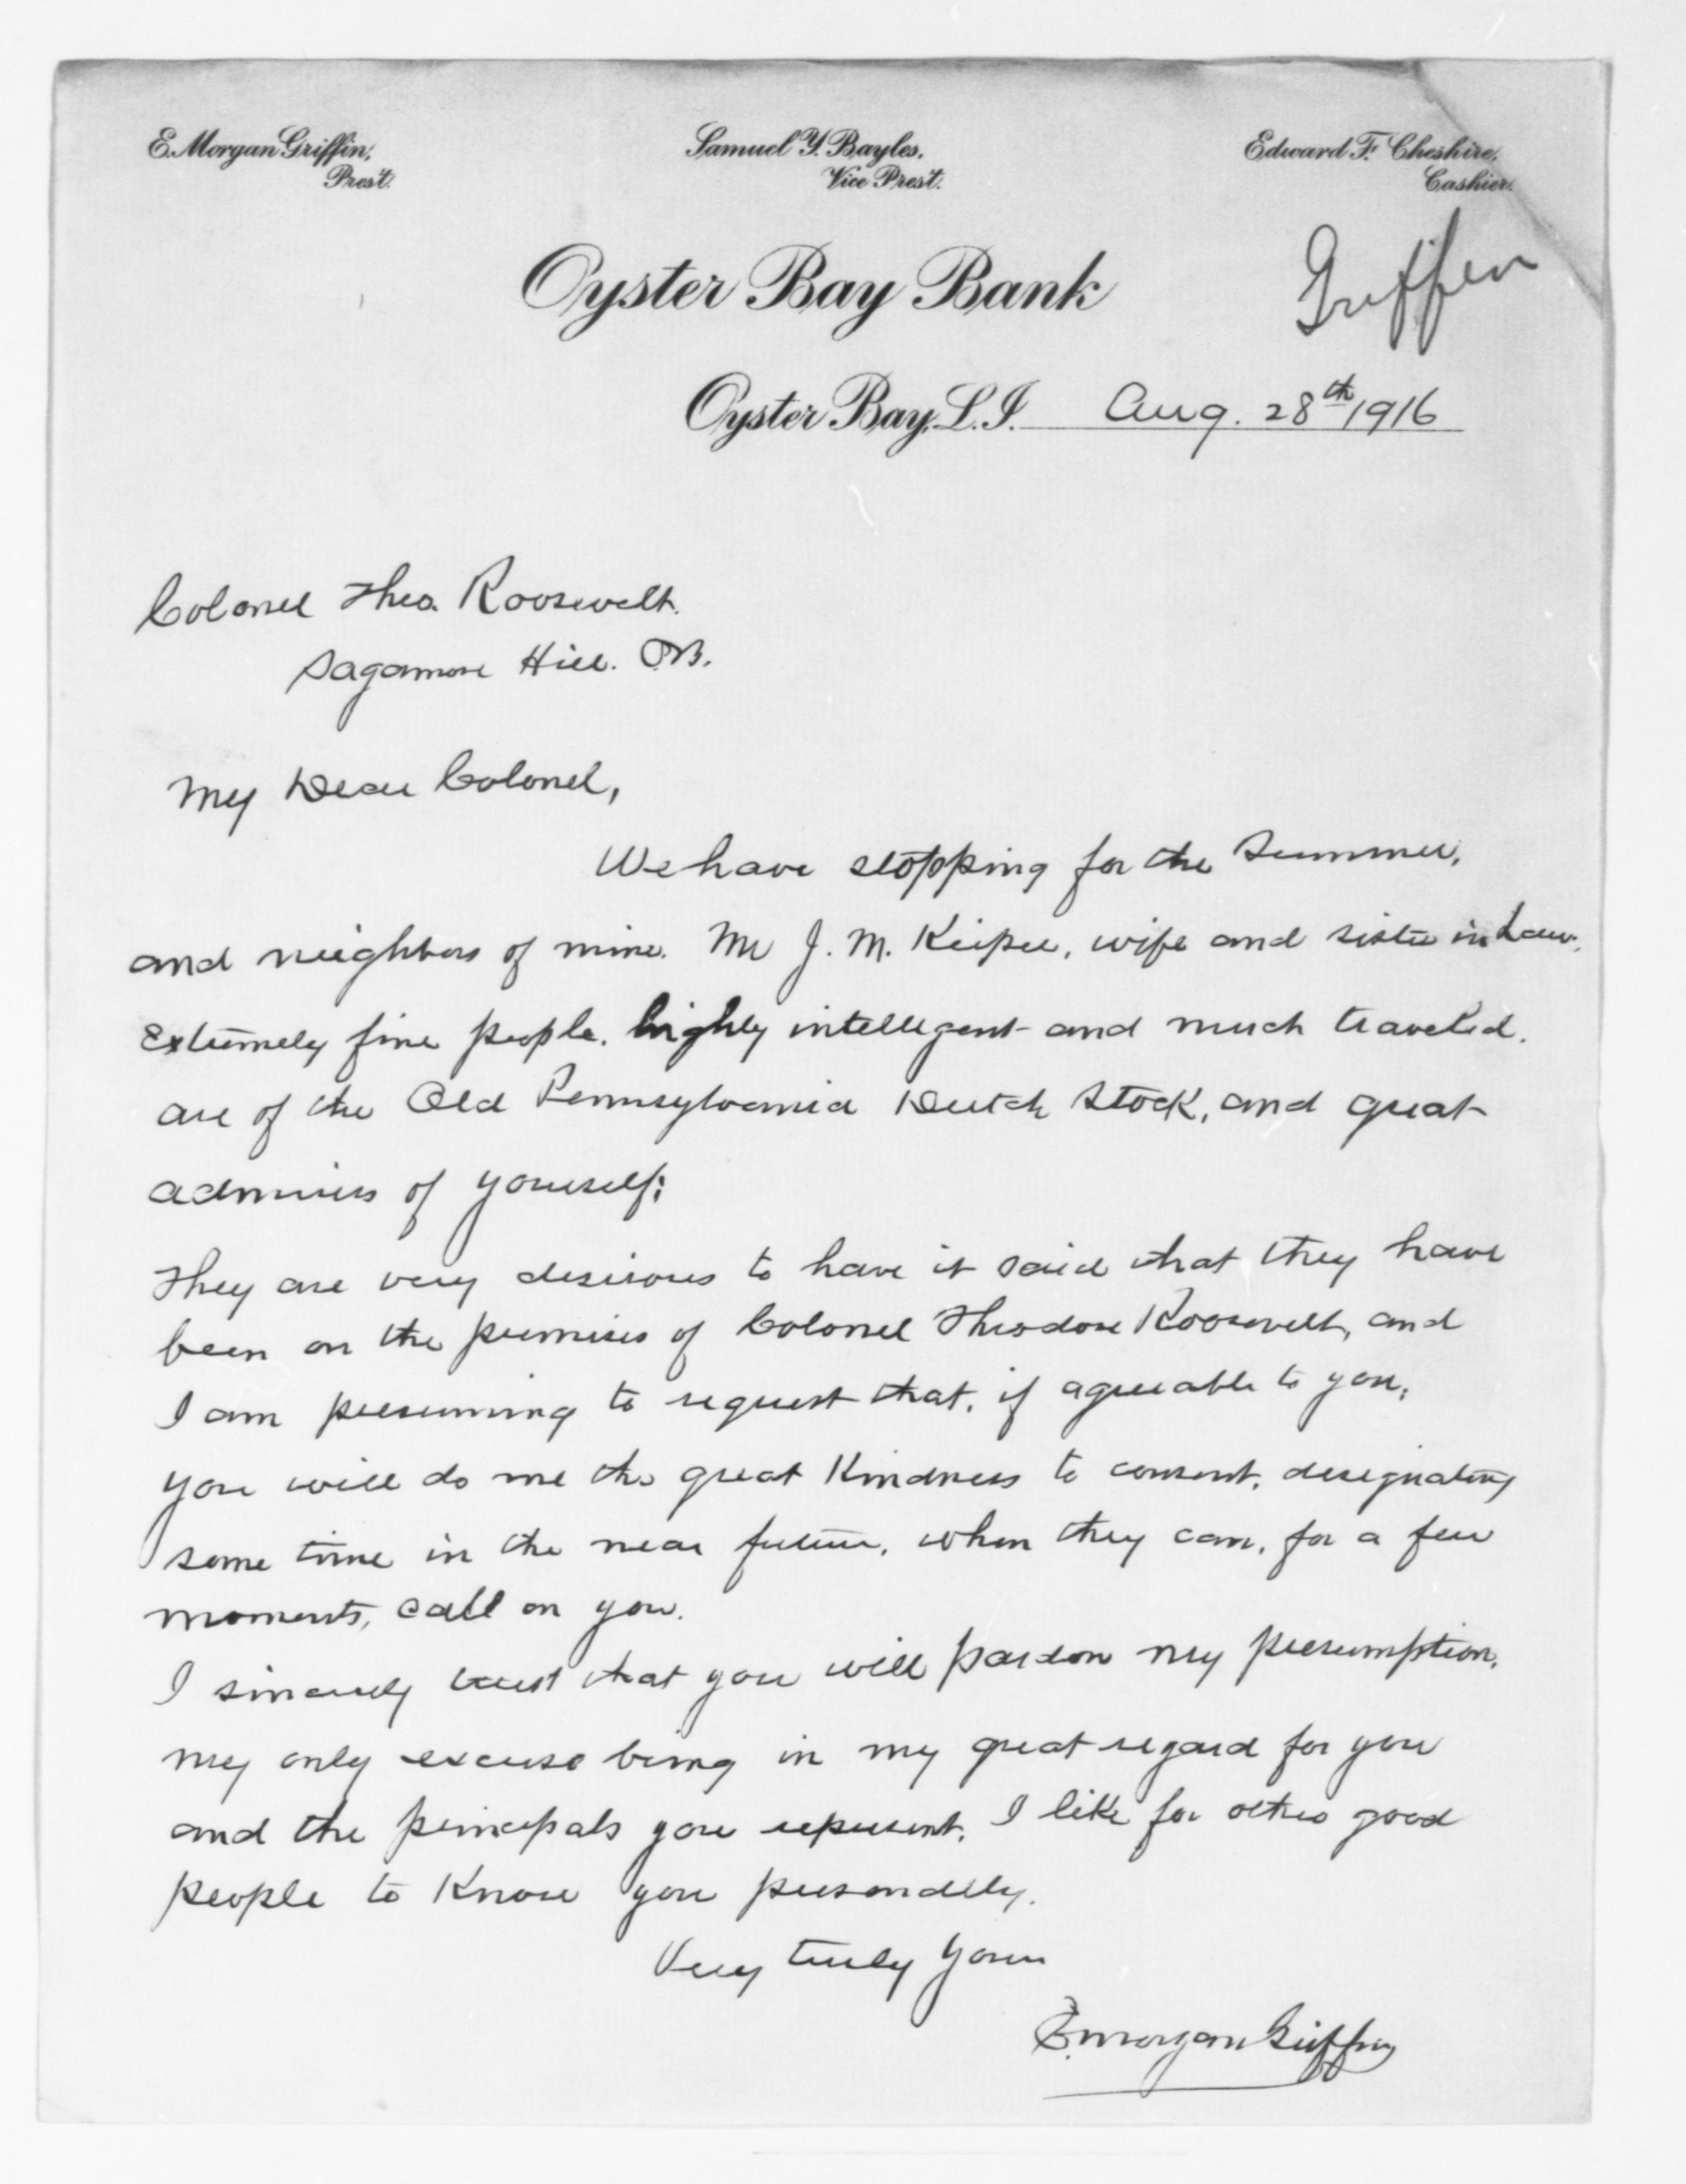 E. Morgan Griffin, Prest. Samuel Y. Bayles, Vice Prest. Edward F. Cheshire, Cashier.
Oyster Bay Bank
Griffen
Oyster Bay, L.I. Aug. 28th 1916
Colonel Theo. Roosevelt.
Sagamore Hill. O.B.
My Dear Colonel,
We have stopping for the Summer,
and neighbors of mine. Mr J. M. Keiper, wife and sister in Law.
Extremely fine people. highly intellegent and much traveled.
are of the Old Pennsylvania Dutch Stock, and great
admirers of yourself;
They are very desirous to have it said that they have
been on the premises of Colonel Theodore Roosevelt, and
I am presuming to request that, if agreeable to you,
you will do me the great Kindness to consent, designating
some time in the near future, when they can, for a few
moments, call on you.
I sincerely trust that you will pardon my presumption,
my only excuse being in my great regard for you
and the principals you represent. I like for others good
people to Know you personally.
Very truly yours
E. Morgan Griffin